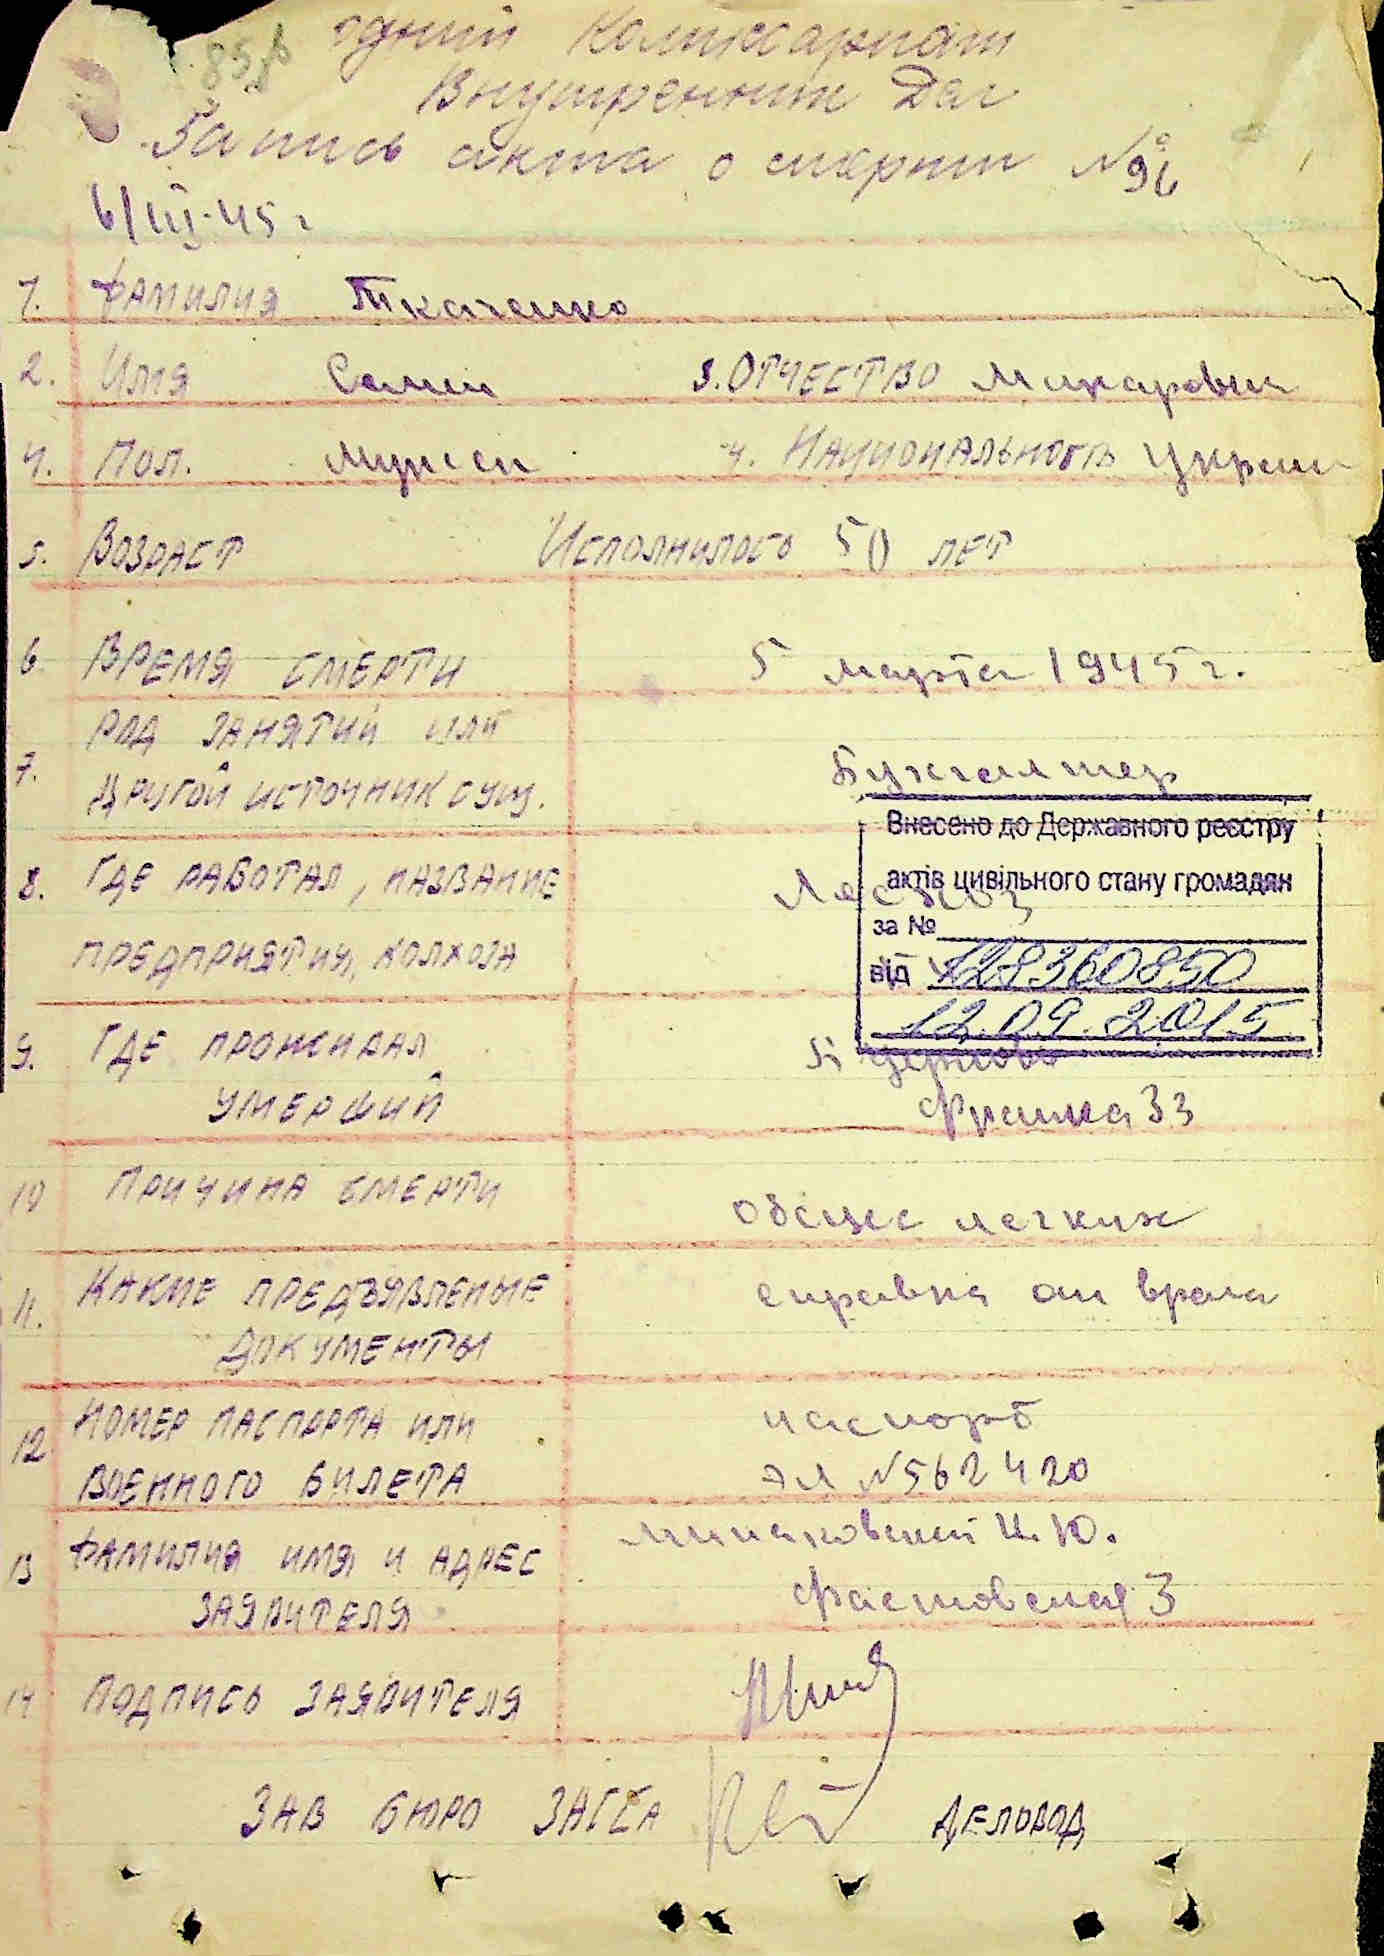 одний Комиссариат
Внутренних Дел
Запись акта о смерти № 96
6/III-45 г
1. Фамилия Ткаченко
2. Имя Семен 3. Отчество Макарович
4. Пол. Мужск 4. Национальность Украин
5. Возраст Исполнилось 50 лет
6 Время смерти 5 марта 1945 г.
Род занятий или
7. другой источник сущ. Бухгалтер
Внесено до Державного реєстру
8. Где работал, название Лесхоз
актів цивільного стану громадян
за №
предприятия, колхоза
від 128360850
12.09.2015
9. Где проживал Б
умерший Франка 33
10 Причина смерти легких
11. Какие предъявленые справка от врача
документы
Номер паспорта или паспорт
12 военного билета № 562420
13 Фамилия имя и адрес И. Ю.
заявителя Фастовская 3
14 Подпись заявителя
Зав бюро загса Деловод